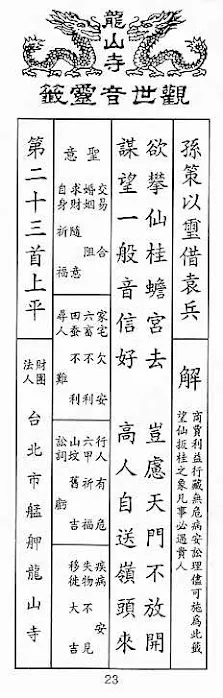 龍山寺
觀世音靈籤
孫策以璽借袁兵
解
商賈利益行藏無危病安訟理儘可施為此籤
望仙扳桂之象凡事必遇貴人
欲攀仙桂蟾宮去 豈慮天門不放開
謀望一般音信好 高人自送嶺頭來
聖意
交易 合
婚姻 阻
求財 隨意
自身 祈福
家宅 欠安
六畜 不利
田蚕 不利
尋人 難
行人 有危
六甲 祈福
山坟 舊吉
訟詞 虧
疾病 安
失物 不見
移徙 大吉
第二十三首上平
財團法人 台北市艋舺龍山寺
23